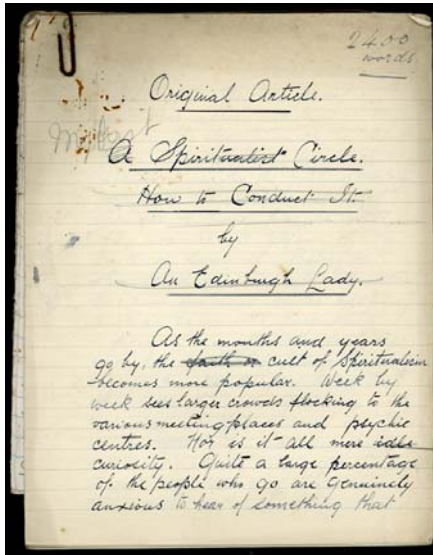 2400
words
Original Article.
A Spiritualist Circle.
How to Conduct It.
by
An Edinburgh Lady.
As the months and years
go by, the faith or cult of Spiritualism
becomes more popular. Week by
week sees larger crowds flocking to the
various meeting places and psychic
centres. Nor is it all mere idle
curiosity. Quite a large percentage
of the people who go are genuinely
anxious to hear of something that